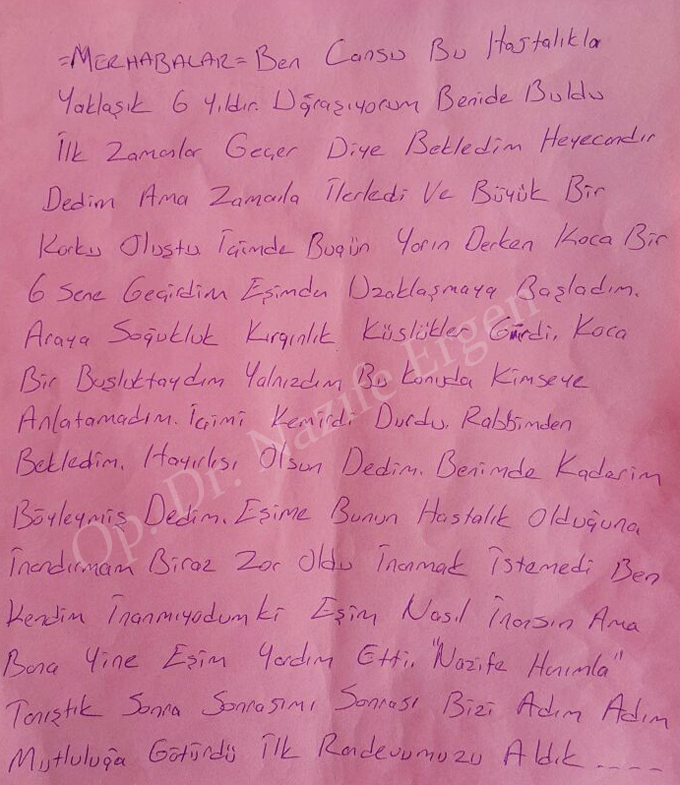 =MERHABALAR= Ben Cansu Bu Hastalıkla
Yaklaşık 6 yıldır. Uğraşıyorum Benide Buldu
İlk Zamanlar Geçer Diye Bekledim Heyecandır
Dedim Ama Zamanla İlerledi Ve Büyük Bir
Korku Oluştu İçimde Bugün Yarın Derken Koca Bir
6 Sene Geçirdim Eşimden Uzaklaşmaya Başladım.
Araya Soğukluk Kırgınlık Küslükler Girdi. Koca
Bir Boşluktaydım Yalnızdım Bu Konuda Kimseye
Anlatamadım. İçimi Kemirdi Durdu. Rabbimden
Bekledim. Hayırlısı Olsun Dedim. Benimde Kaderim
Böyleymiş Dedim. Eşime Bunun Hastalık Olduğuna
İnandırmam Biraz Zor Oldu İnanmak İstemedi Ben
Kendim İnanmıyodumki Eşim Nasıl İnansın Ama
Bana Yine Eşim Yardım Etti. "Nazife Hanımla"
Tanıştık Sonra Sonrasımı Sonrası Bizi Adım Adım
Mutluluğa Götürdü İlk Randevumuzu Aldık ....
Op. Dr. Nazife Ergen